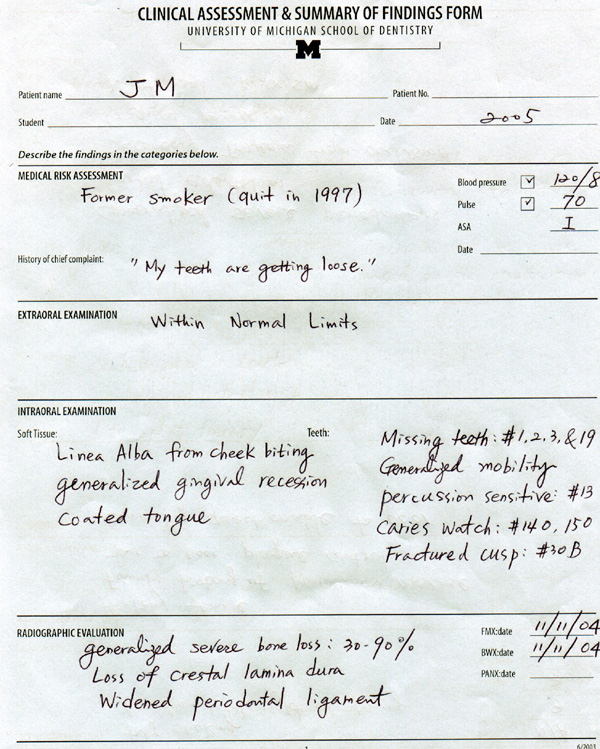 CLINICAL ASSESSMENT & SUMMARY OF FINDINGS FORM
UNIVERSITY OF MICHIGAN SCHOOL OF DENTISTRY
M
Patient name JM Patient No.
Student Date 2005
Describe the findings in the categories below.
MEDICAL RISK ASSESSMENT
Former smoker (quit in 1997)
Blood pressure 120/8
Pulse 70
ASA I
Date
History of chief complaint: "My teeth are getting loose."
EXTRAORAL EXAMINATION Within Normal Limits
INTRAORAL EXAMINATION
Soft Tissue:
Linea Alba from cheek biting
generalized gingival recession
coated tongue
Teeth:
Missing teeth: #1, 2, 3, & 19
Generalized mobility
percussion sensitive: #13
Caries watch: #14O, 15O
Fractured cusp: #30B
RADIOGRAPHIC EVALUATION
generalized severe bone loss: 30-90%
Loss of crestal lamina dura
Widened periodontal ligament
FMX:date 11/11/04
BWX:date 11/11/04
PANX:date
6/2003